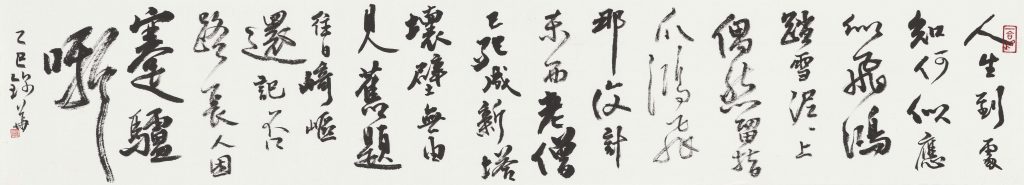 人生到處
知何似應
似飛鴻
踏雪泥〻上
偶然留指
爪鴻飛
那復計
東西老僧
已死成新塔
壞壁無由
見舊題
往日崎嶇
還記否
路長人困
蹇驢
嘶
乙巳